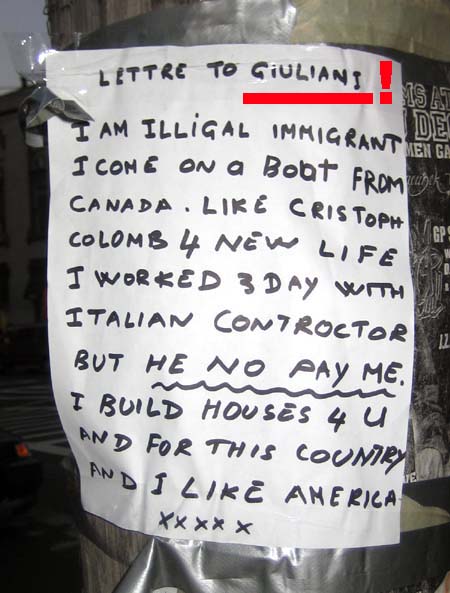 LETTRE TO GIULIANI !
I AM ILLIGAL IMMIGRANT
I COME ON a BOat FROM
CANADA. LIKE CRISTOPH
COLOMB 4 NEW LIFE
I WORKED 3 DAY WITH
ITALIAN CONTROCTOR
BUT HE NO PAY ME.
I BUILD HOUSES 4 U
AND FOR THIS COUNTRY
AND I LIKE AMERICA
XXXX X
MEN GA
GPS